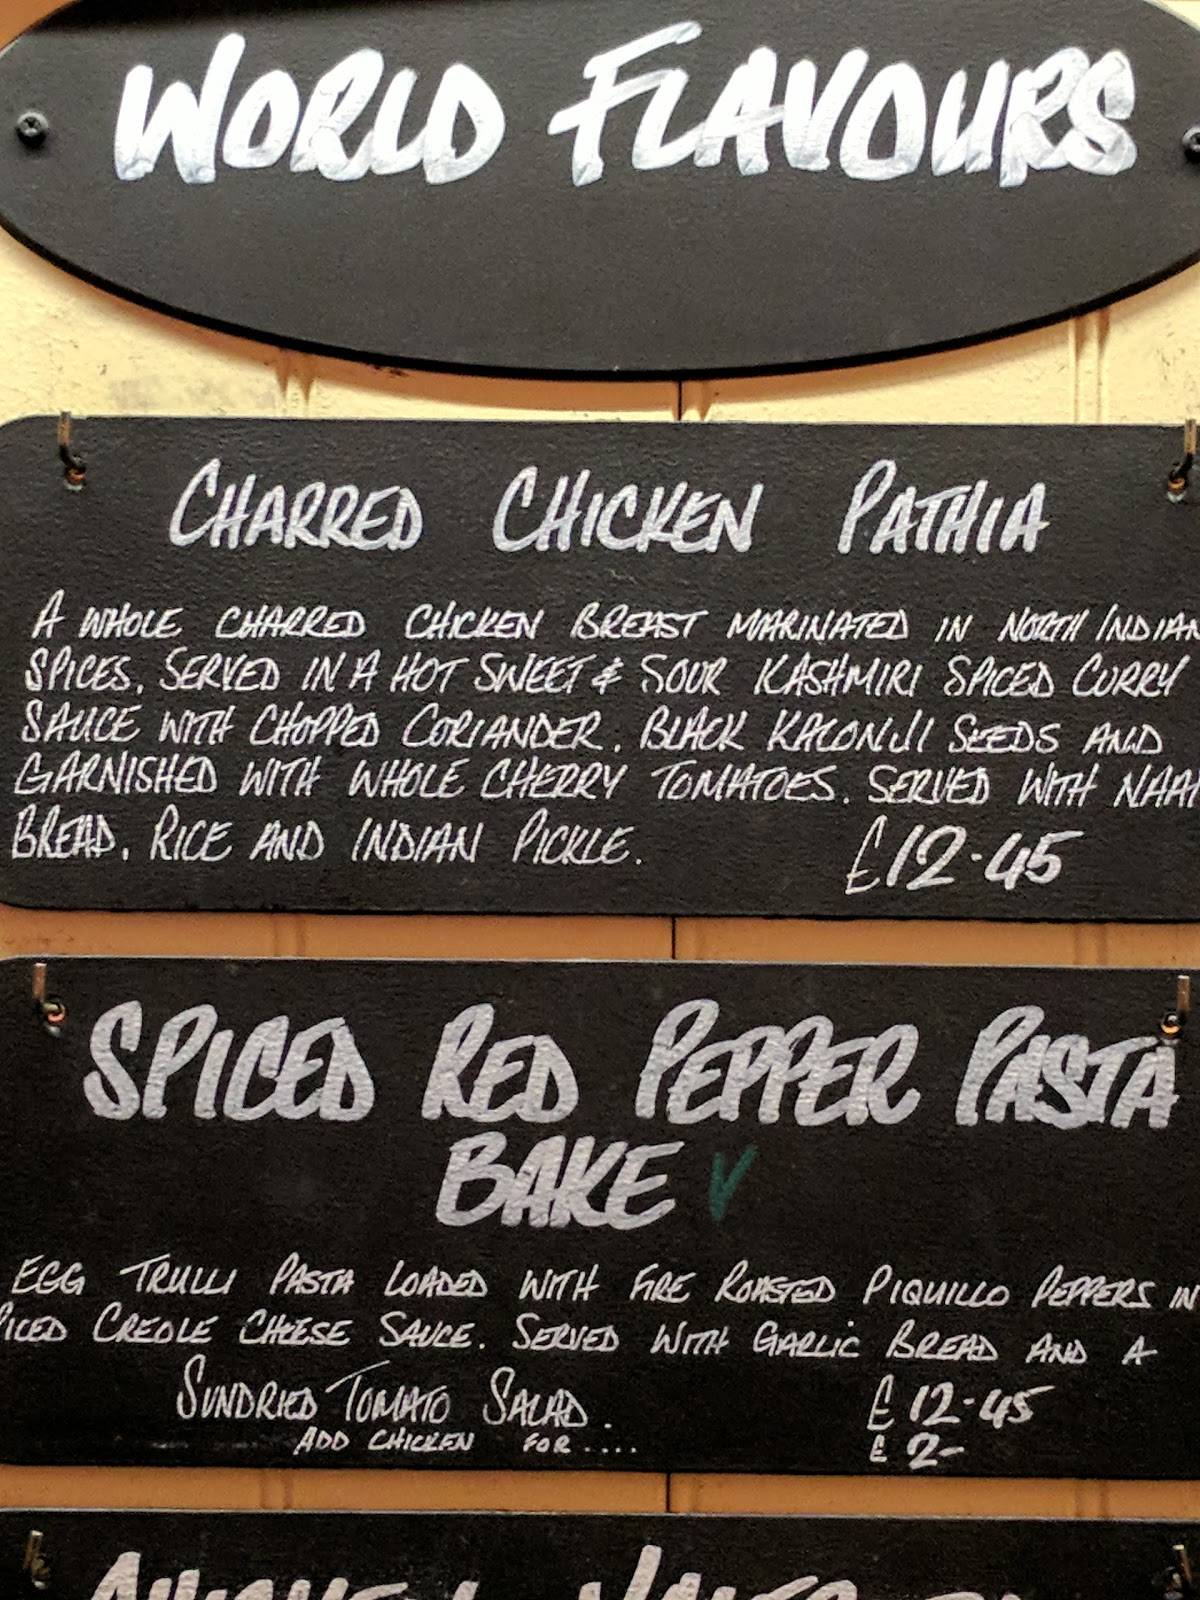 WORLD FLAVOURS
CHARRED CHICKEN PATHIA
A WHOLE CHARRED CHICKEN BREAST MARINATED IN NORTH INDIAN
SPICES. SERVED IN A HOT SWEET & SOUR KASHMIRI SPICED CURRY
SAUCE WITH CHOPPED CORIANDER. BLACK KALONJI SEEDS AND
GARNISHED WITH WHOLE CHERRY TOMATOES. SERVED WITH NAAN
BREAD. RICE AND INDIAN PICKLE. £12.45
SPICED RED PEPPER PASTA
BAKE V
EGG TRULLI PASTA LOADED WITH FIRE ROASTED PIQUILLO PEPPERS IN
PICED CREOLE CHEESE SAUCE. SERVED WITH GARLIC BREAD AND A
SUNDRIED TOMATO SALAD. £12.45
ADD CHICKEN FOR.... £2-